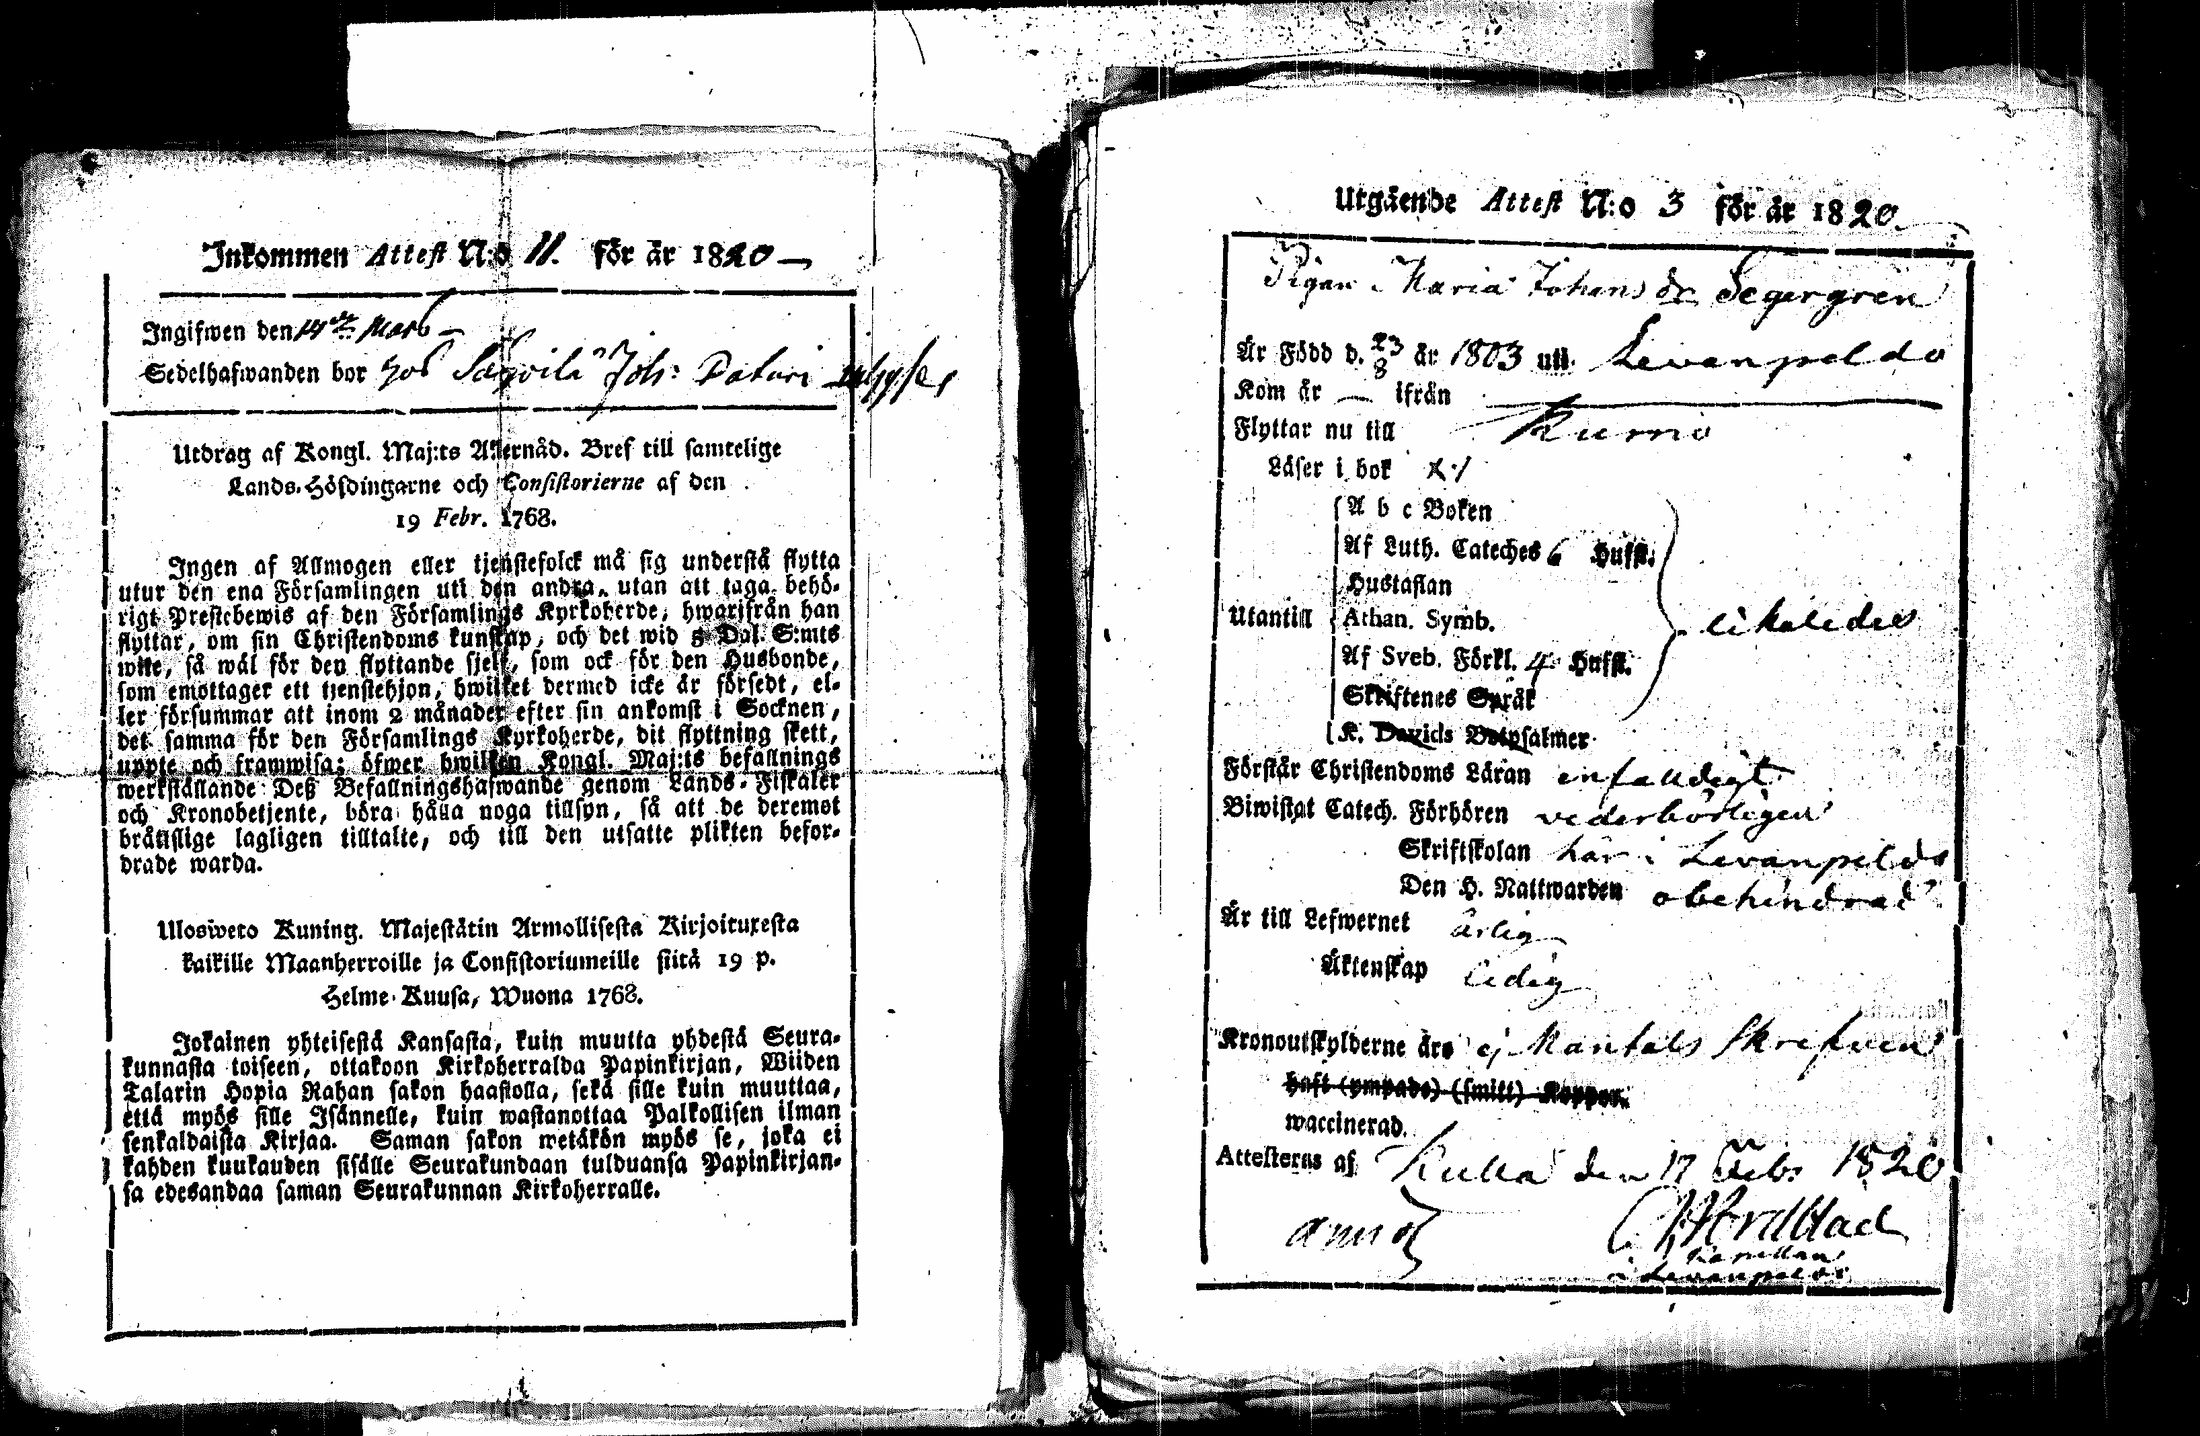 Inkommen Attest N:o 11. för år 1820
Ingifwen den 14de Mars
Sedelhafwanden bor hos Joh:
Utdrag af Kongl. Maj:ts Allernåd. Bref till samtelige
Lands-Höfdingarne och Consistorierne af den
19 Febr. 1768.
Ingen af Allmogen eller tjenstefolck må sig understå flytta
utur den ena Församlingen uti den andra, utan att taga behö-
rigt Prestebewis af den Församlings Kyrkoherde, hwarifrån han
flyttar, om sin Christendoms kunskap, och det wid 5 Dal. S:mts
wite, så wäl för den flyttande sjelf, som ock för den Husbonde,
som emottager ett tjenstehjon, hwilket dermed icke är försedt, el-
ler försummar att inom 2 månader efter sin ankomst i Socknen,
det samma för den Församlings Kyrkoherde, dit flyttning skett,
uppte och framwisa; öfwer hwilken Kongl. Maj:ts befallnings
werkställande Deß Befallningshafwande genom Lands-Fiskaler
och Kronobetjente, böra hålla noga tillsyn, så att de deremot
bråttslige lagligen tilltalte, och till den utsatte plikten befor-
drade warda.
Ulosweto Kuning. Majestätin Armollisesta Kirjoituxesta
kaikille Maanherroille ja Consistoriumeille siitä 19 p.
Helme-Kuusa, Wuona 1768.
Jokainen yhteisestä Kansasta, kuin muutta yhdestä Seura-
kunnasta toiseen, ottakoon Kirkoherralda Papinkirjan, Wiiden
Talarin Hopia Rahan sakon haastolla, sekä sille kuin muuttaa,
että myös sille Isännelle, kuin wastanottaa Palkollisen ilman
senkaldaista Kirjaa. Saman sakon wetäkön myös se, joka ei
kahden kuukauden sisälle Seurakundaan tulduansa Papinkirjan-
sa edesandaa saman Seurakunnan Kirkoherralle.
Utgående Attest N:o 3 för år 1820.
Pigan Maria Johans dr Segergren
Är Född d. 23/8 år 1803 uti Levanpeldo
Kom år — ifrån
Flyttar nu till Kumo
Läser i bok
A b c Boken
Af Luth. Cateches 6 Hufst.
Hustaflan
Utantill Athan. Symb. likaledes
Af Sveb. Förkl. 4 Hufst.
Skriftenes Språk
K. Davids Botpsalmer
Förstår Christendoms Läran enfaldigt
Biwistat Catech. Förhören vederbörligen
Skriftskolan här i Levanpeldo
Den H. Nattwarden obehindrad
Är till Lefwernet ärlig
Äktenskap ledig
Kronoutskylderne äro ej Mantals Skrefven
haft (ympade) (smitt) Koppor.
waccinerad.
Attesteras af Kulla den 17 Febr 1820
Nordblad
Kapellan
i Levanpeldo